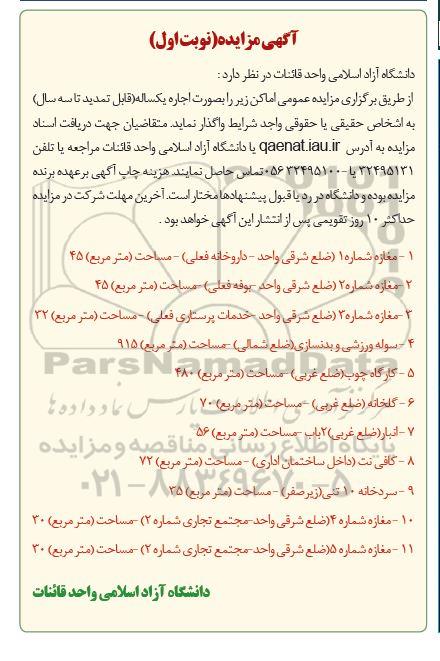 آگهی مزایده(نوبت اول)
دانشگاه آزاد اسلامی واحد قائنات در نظر دارد :
از طریق برگزاری مزایده عمومی اماکن زیر را بصورت اجاره یکساله(قابل تمدید تا سه سال)
به اشخاص حقیقی یا حقوقی واجد شرایط واگذار نماید. متقاضیان جهت دریافت اسناد
مزایده به آدرس qaenat.iau.ir یا دانشگاه آزاد اسلامی واحد قائنات مراجعه یا تلفن
۳۲۴۹۵۱۳۱ یا ۳۲۴۹۵۱۰۰-۰۵۶ تماس حاصل نمایند. هزینه چاپ آگهی برعهده برنده
مزایده بوده و دانشگاه در رد یا قبول پیشنهادها مختار است. آخرین مهلت شرکت در مزایده
حداکثر ۱۰ روز تقویمی پس از انتشار این آگهی خواهد بود .
۱ - مغازه شماره۱ (ضلع شرقی واحد - داروخانه فعلی) - مساحت (متر مربع) ۴۵
۲ -مغازه شماره۲ (ضلع شرقی واحد -بوفه فعلی) -مساحت (متر مربع) ۴۵
۳ -مغازه شماره۳ (ضلع شرقی واحد -خدمات پرستاری فعلی) - مساحت (متر مربع) ۳۲
۴ - سوله ورزشی و بدنسازی(ضلع شمالی) -مساحت (متر مربع) ۹۱۵
۵ - کارگاه چوب(ضلع غربی) -مساحت (متر مربع) ۴۸۰
۶ - گلخانه (ضلع غربی) -مساحت (متر مربع) ۷۰
۷ - انبار(ضلع غربی)۲باب -مساحت (متر مربع) ۵۶
۸ - کافی نت (داخل ساختمان اداری) - مساحت (متر مربع) ۷۲
۹ - سردخانه ۱۰ تنی(زیرصفر) - مساحت (متر مربع) ۳۵
۱۰ - مغازه شماره ۴(ضلع شرقی واحد-مجتمع تجاری شماره ۲) -مساحت (متر مربع) ۳۰
۱۱ - مغازه شماره ۵(ضلع شرقی واحد-مجتمع تجاری شماره ۲) -مساحت (متر مربع) ۳۰
دانشگاه آزاد اسلامی واحد قائنات
ParsNamadData
پایگاه اطلاع رسانی مناقصه و مزایده
۰۲۱-۸۸۳۴۹۶۷۰-۵